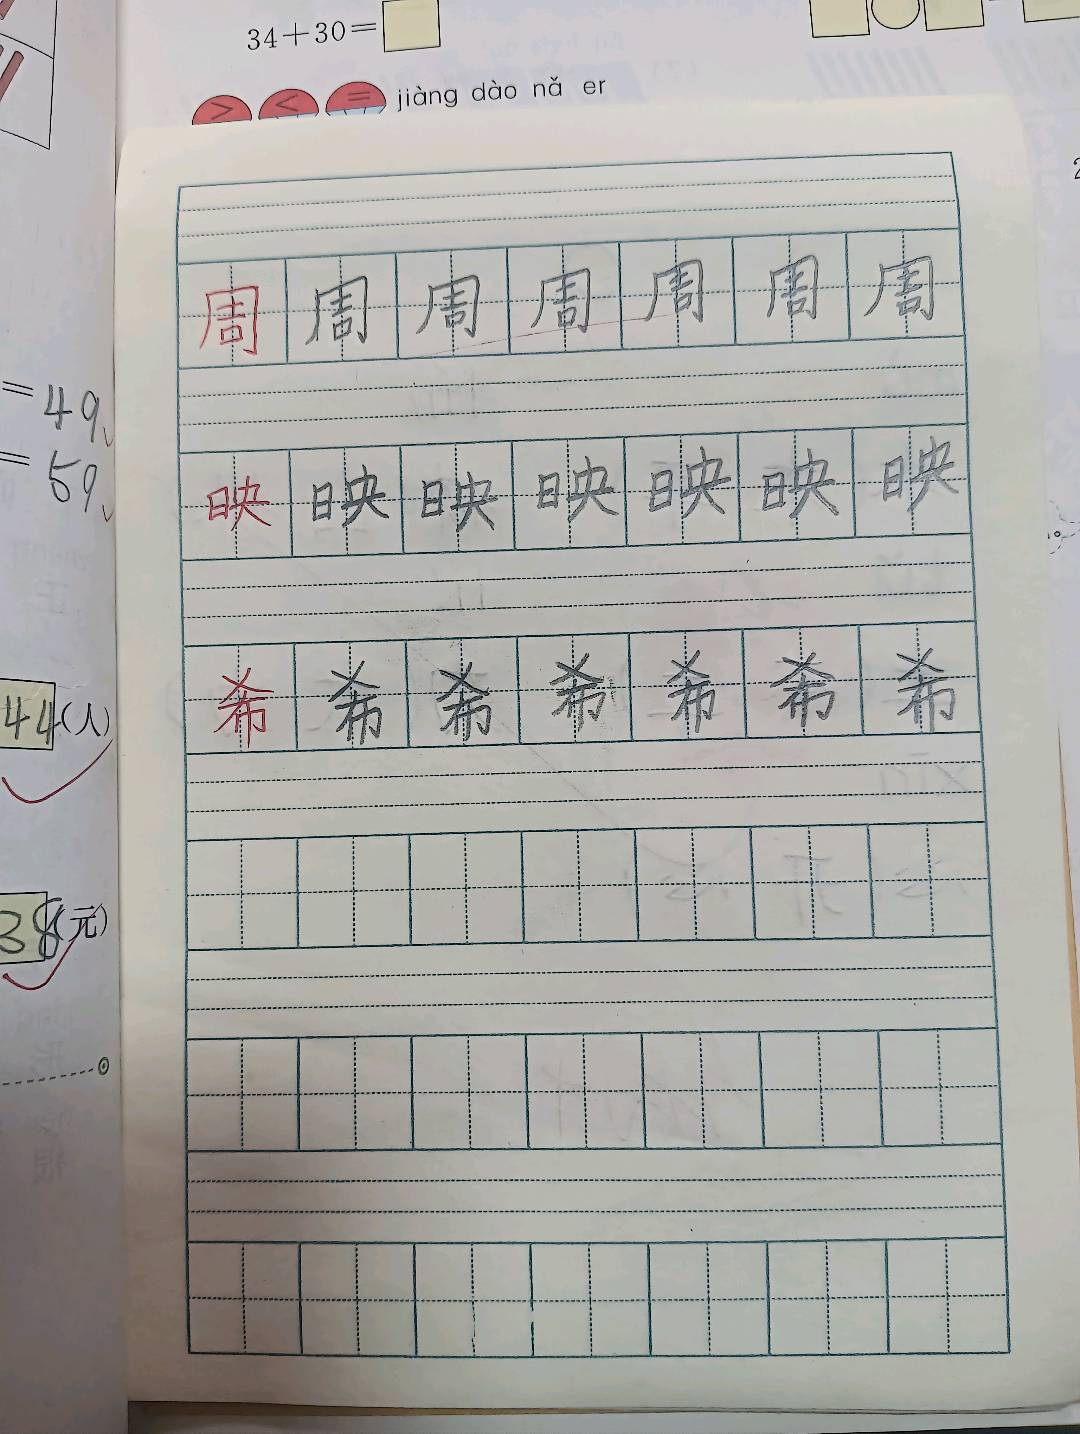 34+30=
> < = jiàng dào nǎ er
周 周 周 周 周 周 周
=49
=59
映 映 映 映 映 映 映
希 希 希 希 希 希 希
44(人)
38(元)